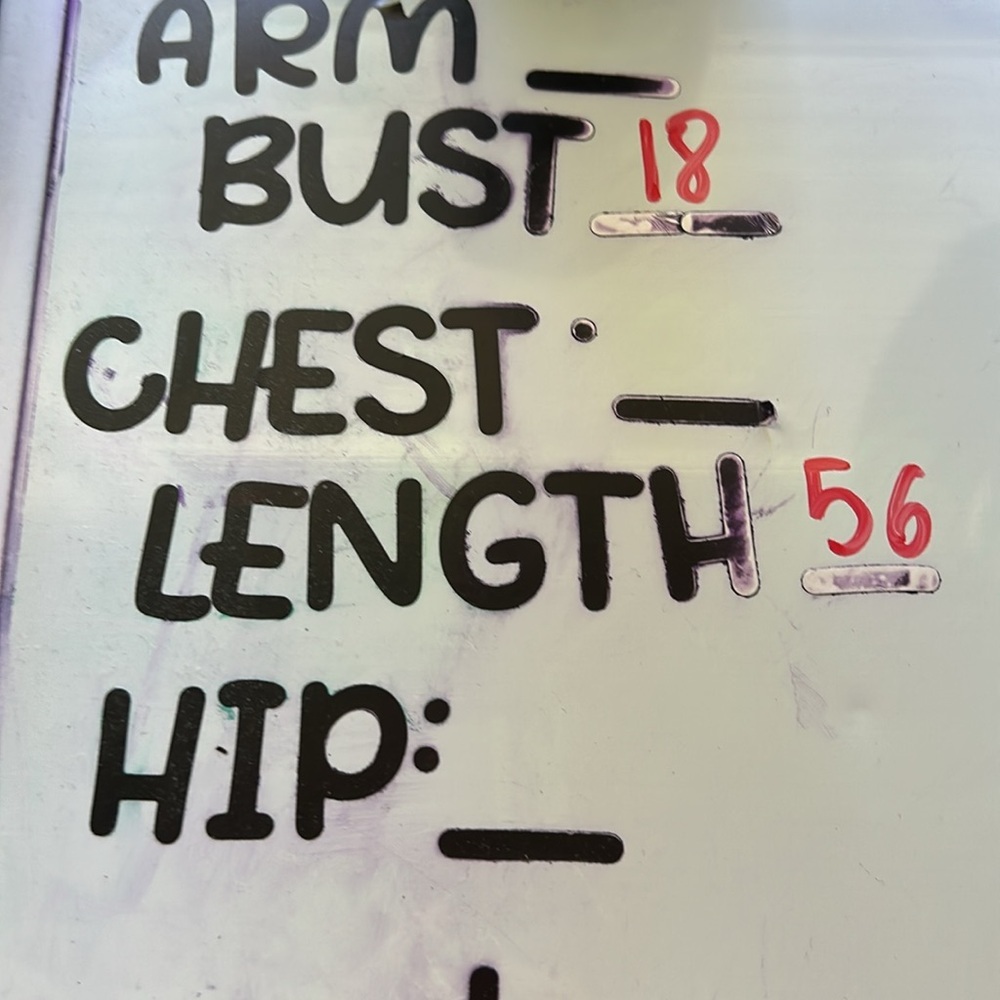 ARM _
BUST 18
CHEST · _
LENGTH 56
HIP: _